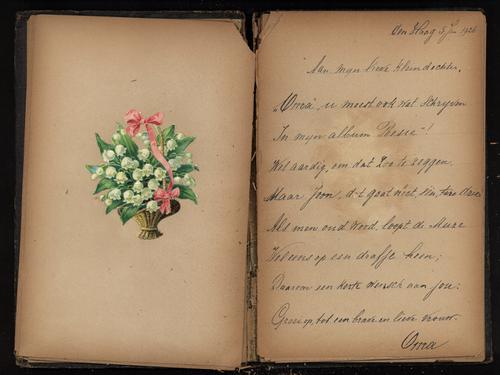 Den Haag 5 Jan 1926
Aan mijn lieve kleindochter,
"Oma", u moest ook wat schrijven
In mijn album Poesie"!
Wel aardig, om dat zoo te zeggen,
Maar Joon, d-t gaat niet, één, twee
Als men oud word, loopt de Muze
Wel eens op een drafje heen;
Daarom een korte wensch aan jou:
Groei op, tot een brave en lieve vrouw.
Oma